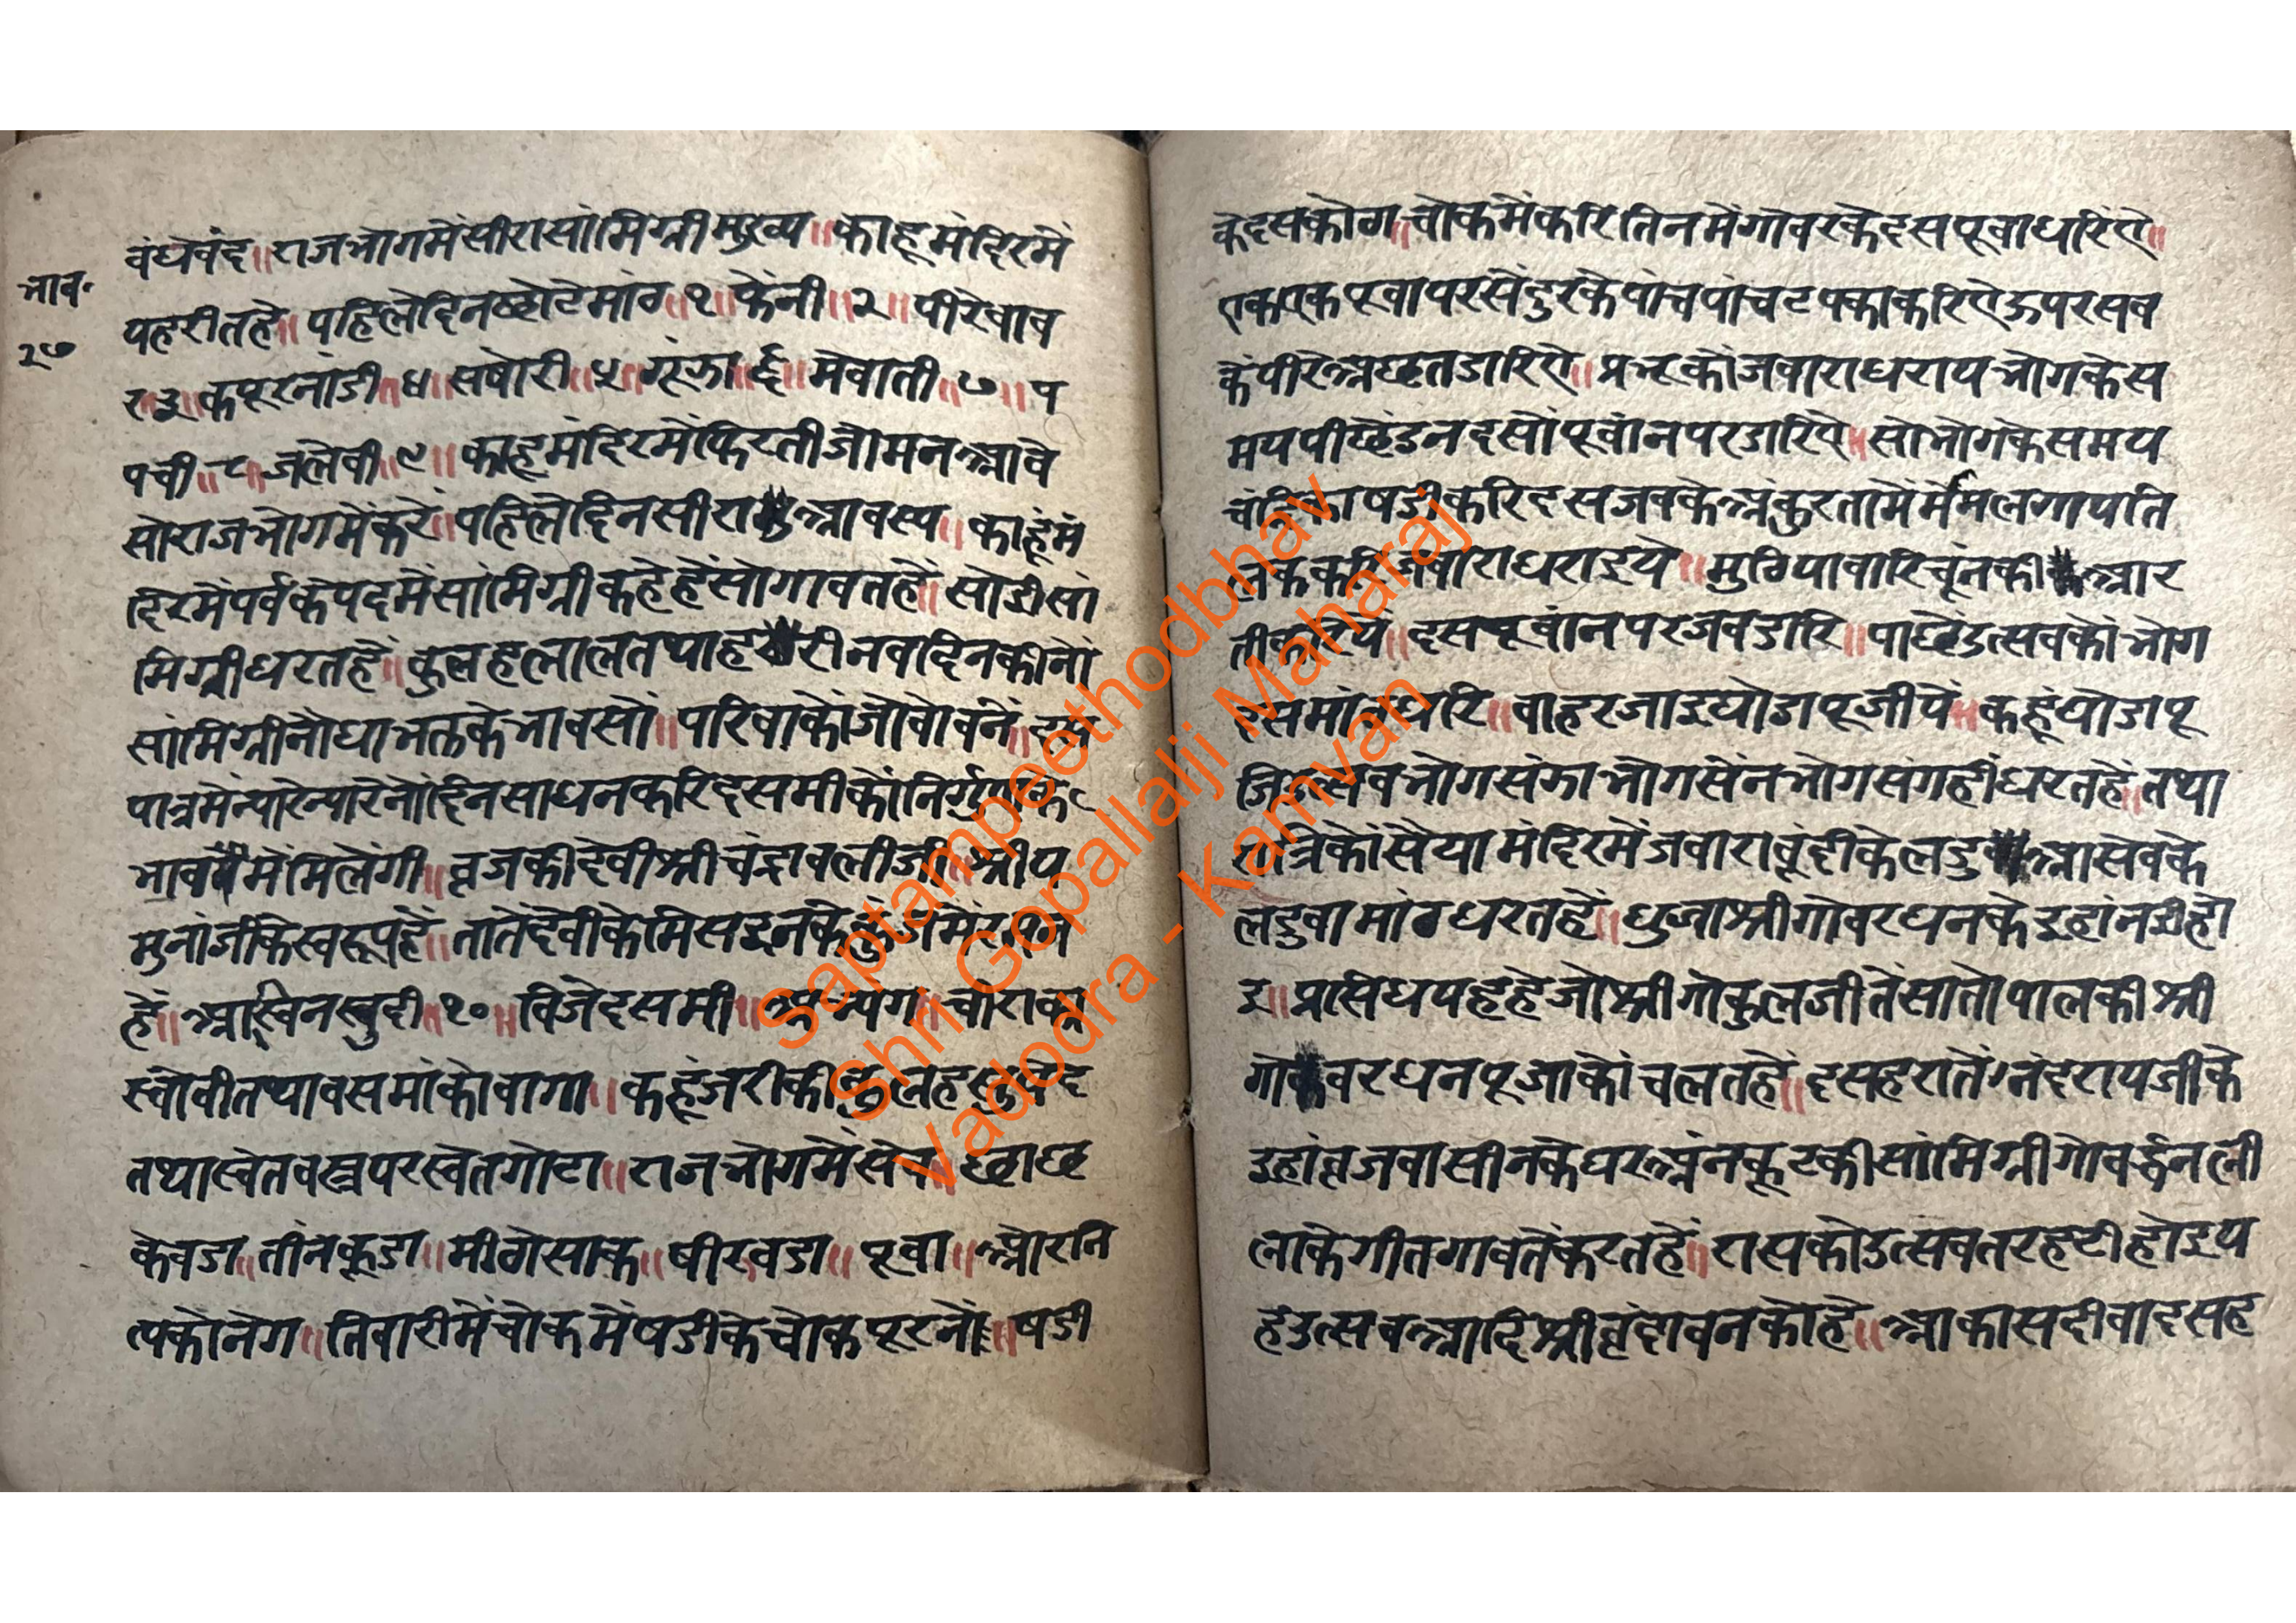 भाव॰
२७
बंधेबंद॥राजभोगमेंसीरासांमिग्रीमुख्य॥काहूमंदिरमें
पहरीतहे॥पहिलेदिनछोटेमांठ॥१॥फेंनी॥२॥पीरेषाव
र॥३॥कपूरनांडी॥४॥सषोरी॥५॥गूंझा॥६॥मेवाती॥७॥प
पची॥८॥जलेबी॥९॥काहूमंदिरमेंफिरतीजोमनआवे
सोराजभोगमेंकरें॥पहिलेदिनसीराआवस्य॥काहूंमं
दिरमेंपर्वकेपदमेंसांमिग्रीकहेहेंसोगावतहें॥सोईसां
मिग्रीधरतहें॥कुलहलालतथाहरीनवदिनकीनो
सांमिग्रीनोधाभक्तकेभावसों॥परिवाकोंजोबोवनें॥
पात्रमेंन्यारेन्यारेनोदिनसाधनकरिदसमीकोंनिर्गुण
भावमेंमिलेंगी॥व्रजकीदेवीश्रीचंद्रावलीजी॥श्रीय
मुनांजीकेस्वरूपहें॥तातेंदेवीकेमिसइनके
हें॥आस्विनसुदी॥१०॥विजेदसमी॥अभ्यंग॥चीराका
स्वेतीतथावसमांकोवागा॥कहूंजरीकीकुलहसुपेद
तथास्वेतवस्त्रपरस्वेतगोटा॥राजभोगमेंसेव॥छाछ
केवडा॥तीनकूडा॥मीठोसाक॥षीरवडा॥पूवा॥औरनि
त्यकोनेग॥तिवारीमेंचोकमेंषडीकेचोकपूरनों॥षडी
केदसकोठा॥चोकमेंकरितिनमेंगोबरकेदसपूवाधरिऐं॥
एकएकपूवापरसेंदुरकेपांचपांचटपकाकरिऐऊपरसब
केंपीरेअछतडारिऐ॥प्रभूकोंजवाराधरायभोगकेस
मयपीछेंइनदसोंपूवांनपरडारिऐ॥सोभोगकेसमय
चंद्रिकाषडीकरिदसजवकेअंकुरतामेंमेंमलगायति
लककरिजवाराधराइये॥मुठियावारिचूंनकीआर
तीकरिये॥दसपूवांनपरजवडारि॥पाछेंउत्सवकोंभोग
दसमांठधरि॥बाहरजाइघोडापूजीयें॥कहूंघोडापू
जिउत्सवभोगसंझाभोगसेंनभोगसंगहीधरतहें॥तथा
रात्रिकोंसैयामंदिरमेंजवाराबूंदीकेलडुवाआसेवके
लडुवामांठधरतहें॥धुजाश्रीगोवरधनकेइहांनईहो
इ॥प्रसिधयहहेजोश्रीगोकुलजीतेंसातोपालकीश्री
गोवरधनपूजाकोंचलतहें॥दसहरातेंनंदरायजीके
इहांव्रजवासीनकेघरअंनकूटकीसांमिग्रीगोवर्द्धनली
लाकेगीतगावतेंकरतहें॥रासकोउत्सवतरहटीहोइय
हउत्सवआदिश्रीवृंदावनकोहे॥आकासदीवादसह